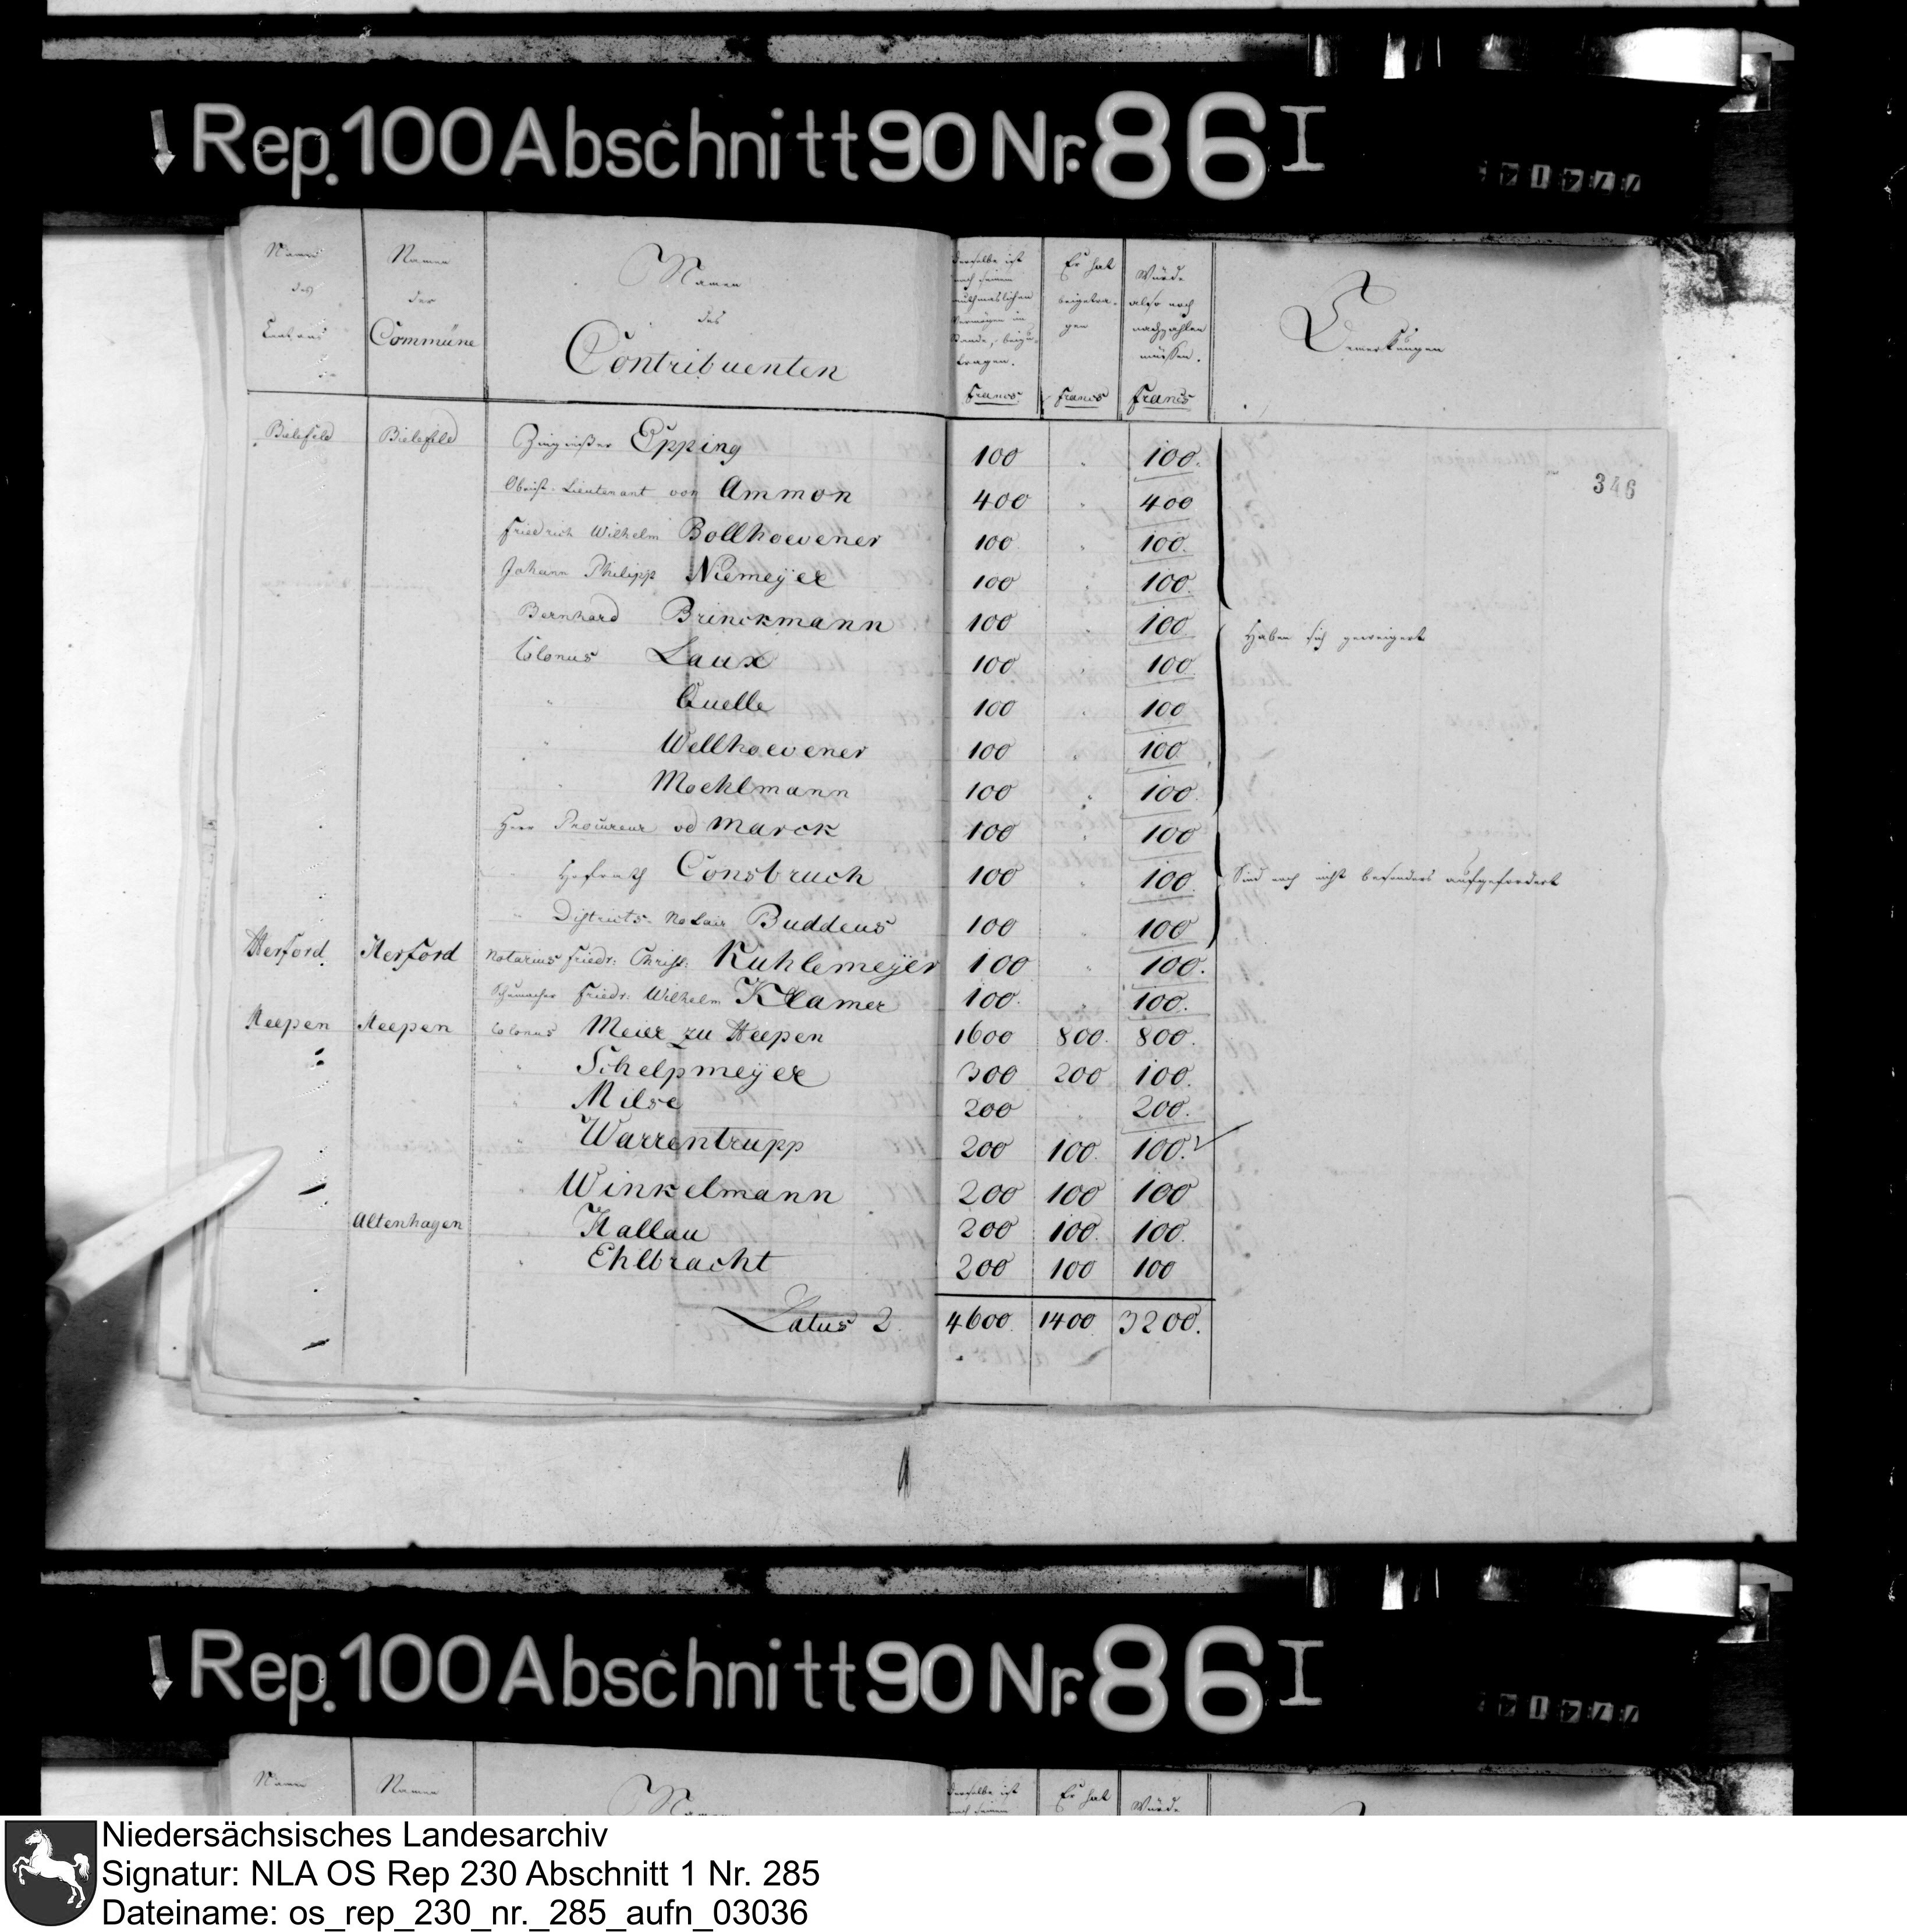 Rep. 100 Abschnitt 90 Nr. 86 I
Namen des Cantons
Namen der Commüne
Namen des Contribuenten
Derselbe ist nach seinem muthmaslichen Vermögen im Stande, beizutragen. Francs
Er hat beigetragen Francs
Würde also noch nachzahlen müssen. Francs
Bemerkungen
346
Bielefeld Bielefeld Zinngießer Epping 100 " 100.
Obrist-Lieutenant von Ammon 400 " 400
Friedrich Wilhelm Bollhoevener 100 " 100.
Johann Philipp Niemeÿer 100 " 100.
Bernhard Brinckmann 100 " 100 Haben sich geweigert
Colonus Laux 100 " 100
" Quelle 100 " 100
" Wellhoevener 100 " 100
" Moehlmann 100 " 100.
Herr Procureur Marck 100 " 100
" Hofrath Consbruch 100 " 100 Sind noch nicht besonders aufgefordert
" Districts-Notair Buddeus 100 " 100
Herford. Herford Notarius Friedr: Christ: Kuhlemeÿer 100 " 100.
Schumacher Friedr: Wilhelm Klamer 100. " 100.
Heepen Heepen Colonus Meier zu Heepen 1600 800. 800.
" Schelpmeÿer 300 200 100.
" Milse 200 " 200.
" Warrentrupp 200 100. 100.
" Winkelmann 200 100 100
Altenhagen " Hallau 200 100. 100.
" Ehlbracht 200 100 100
Latus 2. 4600. 1400 3200.
Rep. 100 Abschnitt 90 Nr. 86 I
Namen Namen Namen Derselbe ist nach seinem Er hat Würde
Niedersächsisches Landesarchiv
Signatur: NLA OS Rep 230 Abschnitt 1 Nr. 285
Dateiname: os_rep_230_nr._285_aufn_03036